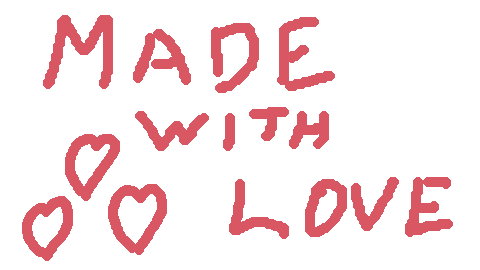 MADE
WITH
LOVE